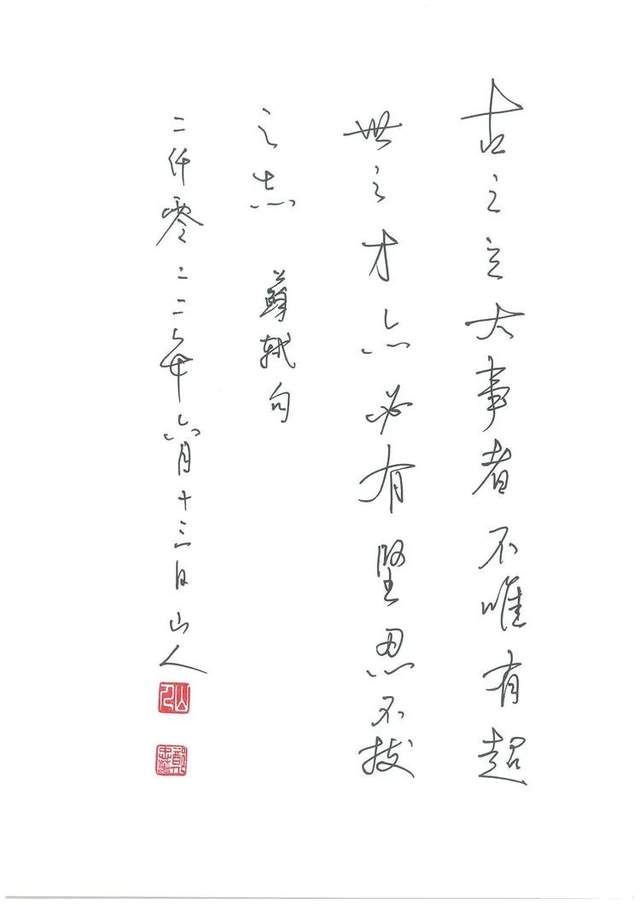 古之立大事者不唯有超
世之才亦必有堅忍不拔
之志 蘇軾句
二仟零二二年六月十三日山人
山人